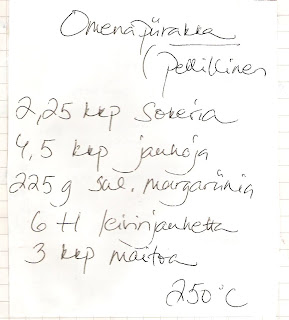 Omenapiirakka
(pellillinen
2,25 kkp sokeria
4,5 kkp jauhoja
225 g sul. margariinia
6 tl leivinjauhetta
3 kkp maitoa
250 °C